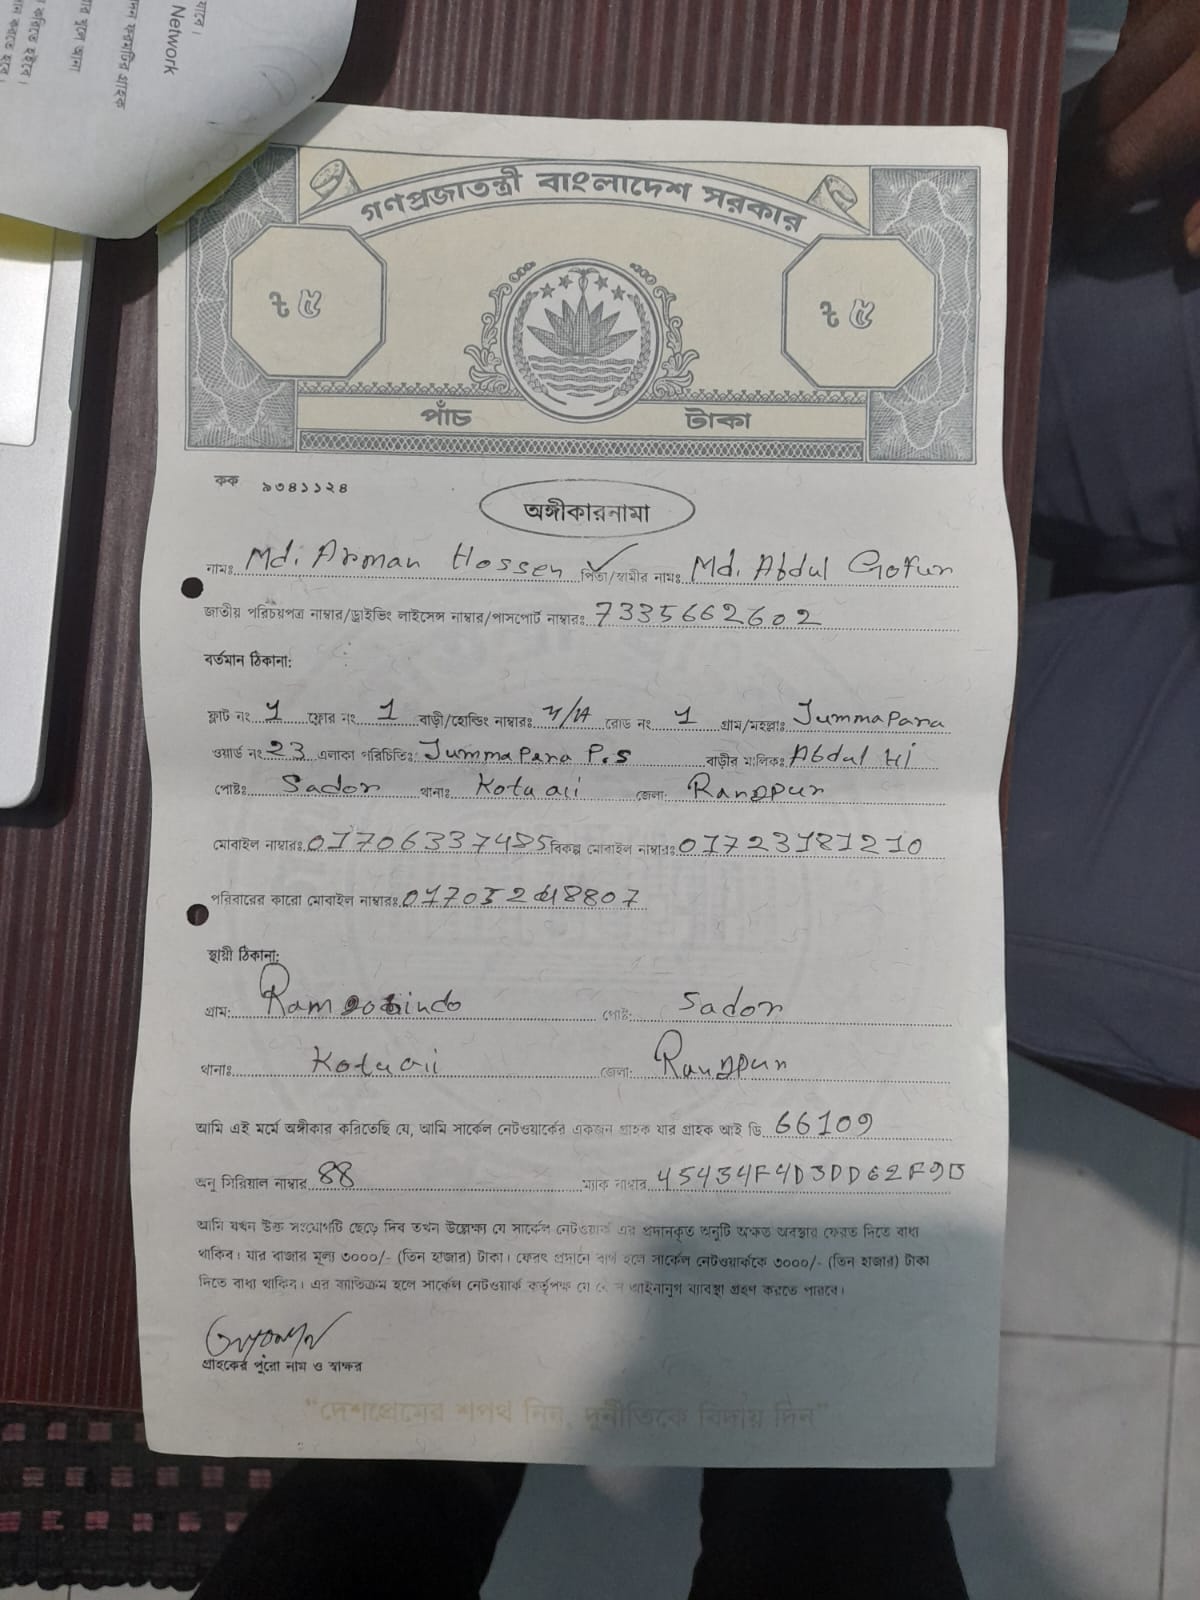 যাবে।
Network
গণপ্রজাতন্ত্রী বাংলাদেশ সরকার
৳ ৫ ৳ ৫
পাঁচ টাকা
কক ৯৩৪১১২৪
অঙ্গীকারনামা
নামঃ Md. Arman Hossen পিতা/স্বামীর নামঃ Md. Abdul Gofur
জাতীয় পরিচয়পত্র নাম্বার/ড্রাইভিং লাইসেন্স নাম্বার/পাসপোর্ট নাম্বারঃ 7335662602
বর্তমান ঠিকানা:
ফ্লাট নং 1 ফ্লোর নং 1 বাড়ী/হোল্ডিং নাম্বারঃ N/A রোড নং 1 গ্রাম/মহল্লাঃ JummaPara
ওয়ার্ড নং 23 এলাকা পরিচিতিঃ JummaPara P.S বাড়ীর মালিকঃ Abdul Hi
পোষ্টঃ Sador থানাঃ Kotuali জেলা: Rangpur
মোবাইল নাম্বারঃ 01706337485 বিকল্প মোবাইল নাম্বারঃ 01723181210
পরিবারের কারো মোবাইল নাম্বারঃ
স্থায়ী ঠিকানা:
গ্রাম: Ramgobindo পোষ্ট: Sador
থানাঃ Kotuali জেলা: Rangpur
আমি এই মর্মে অঙ্গীকার করিতেছি যে, আমি সার্কেল নেটওয়ার্কের একজন গ্রাহক যার গ্রাহক আই ডি 66109
অনু সিরিয়াল নাম্বার 88 ম্যাক নাম্বার 45434F4D3DD62F9B
আমি যখন উক্ত সংযোগটি ছেড়ে দিব তখন উল্লেক্ষ্য যে সার্কেল নেটওয়ার্ক এর প্রদানকৃত অনুটি অক্ষত অবস্থায় ফেরত দিতে বাধ্য
থাকিব। যার বাজার মূল্য ৩০০০/- (তিন হাজার) টাকা। ফেরৎ প্রদানে ব্যর্থ হলে সার্কেল নেটওয়ার্ককে ৩০০০/- (তিন হাজার) টাকা
দিতে বাধ্য থাকিব। এর ব্যতিক্রম হলে সার্কেল নেটওয়ার্ক কর্তৃপক্ষ যে আইনানুগ ব্যাবস্থা গ্রহণ করতে পারবে।
গ্রাহকের পুরো নাম ও স্বাক্ষর
"দেশপ্রেমের শপথ নিন, দুর্নীতিকে বিদায় দিন"